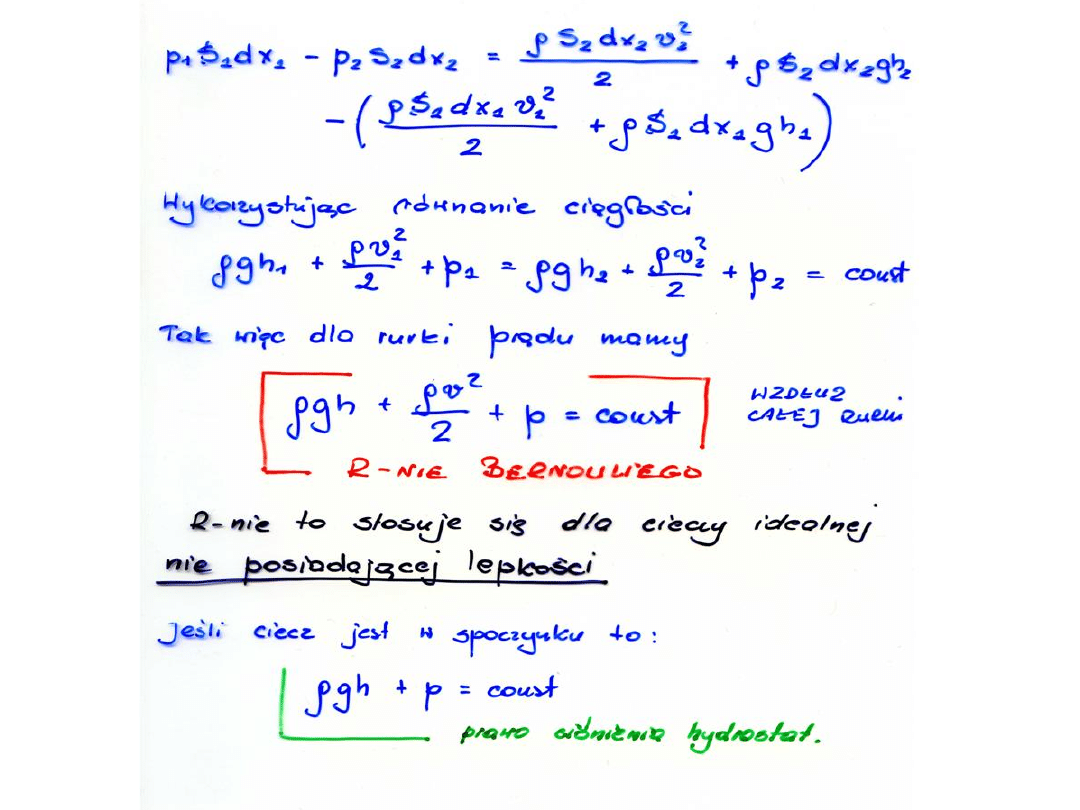 p₁S₁dx₁ - p₂S₂dx₂ = ρS₂dx₂v₂²/2 + ρS₂dx₂gh₂
-(ρS₁dx₁v₁²/2 + ρS₁dx₁gh₁)
Wykorzystując równanie ciągłości
ρgh₁ + ρv₁²/2 + p₁ = ρgh₂ + ρv₂²/2 + p₂ = const
Tak więc dla rurki prądu mamy
ρgh + ρv²/2 + p = const WZDŁUŻ
CAŁEJ RURKI
R-NIE BERNOULLIEGO
R-nie to stosuje się dla cieczy idealnej
nie posiadającej lepkości
Jeśli ciecz jest w spoczynku to:
ρgh + p = const
prawo ciśnienia hydrostat.